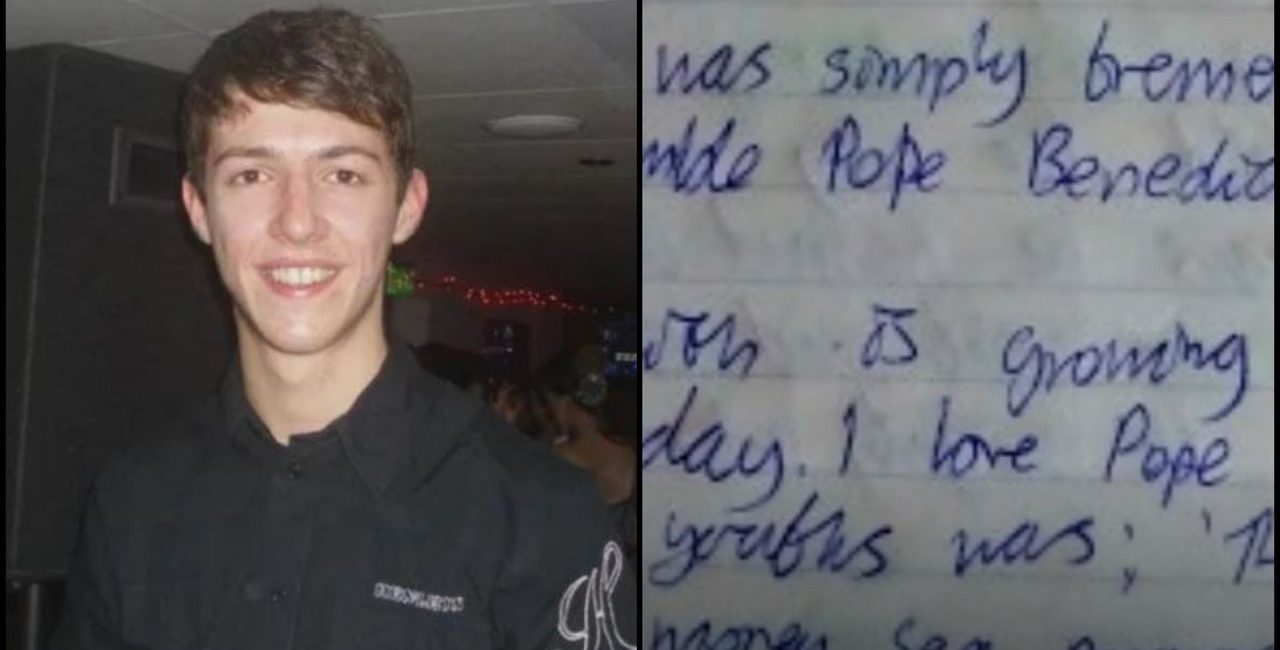 HENLEYS
was simply treme
mble Pope Benedic
ith is growing
day. I love Pope
youths was; 'Th